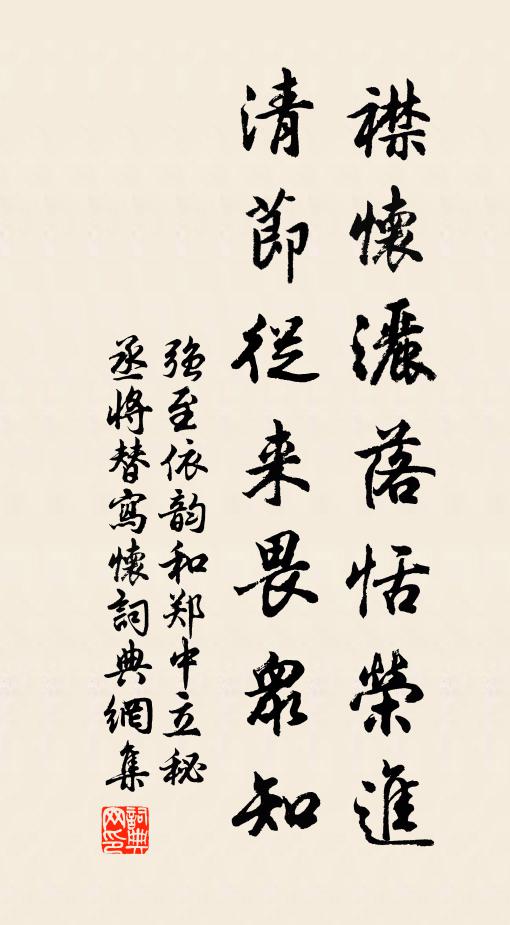 襟懷灑落恬榮進
清節從来畏眾知
强至依韵和郑中立秘
丞将替寫懷詞典網集
詞典网印